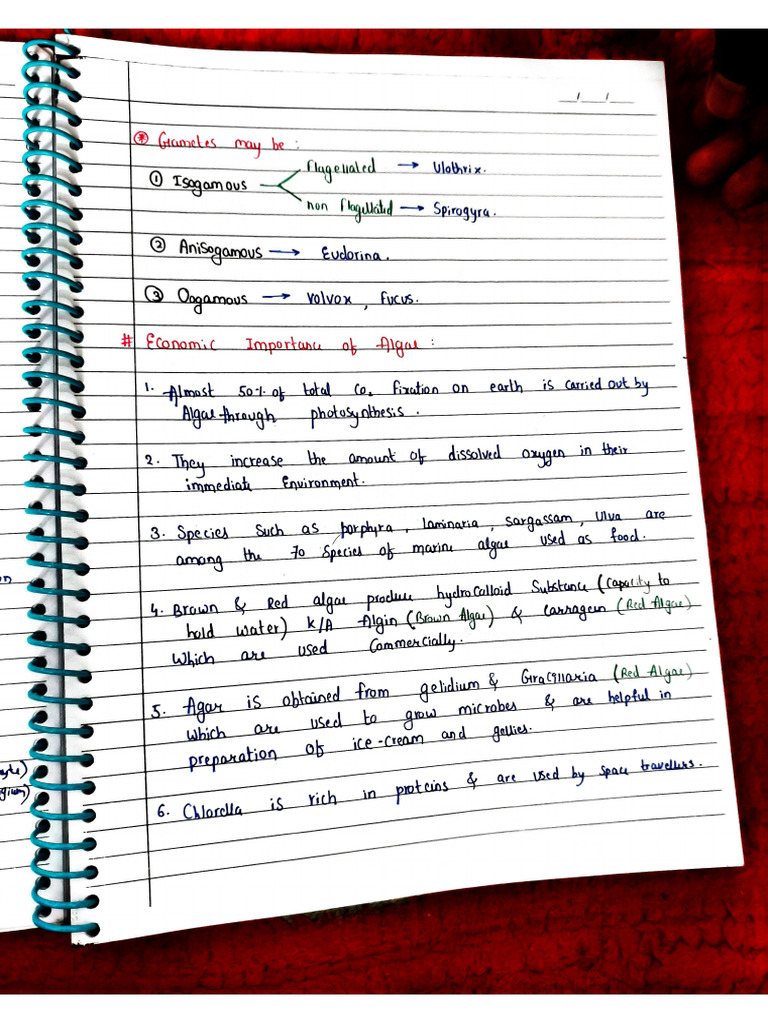 __/__/__
⊛ Gametes may be :
① Isogamous
flagellated → Ulothrix.
non flagellated → Spirogyra.
② Anisogamous → Eudorina.
③ Oogamous → Volvox , Fucus.
# Economic Importance of Algae :
1. Almost 50% of total CO₂ fixation on earth is carried out by
Algae through photosynthesis.
2. They increase the amount of dissolved oxygen in their
immediate Environment.
3. Species such as porphyra, laminaria, sargassam, Ulva are
among the 70 species of marine algae used as food.
4. Brown & Red algae produce hydrocolloid Substance (Capacity to
hold water) K/A Algin (Brown Algae) & Carrageen (Red Algae)
Which are used Commercially.
5. Agar is obtained from gelidium & Gracillaria (Red Algae)
which are used to grow microbes & are helpful in
preparation of ice-cream and gellies.
6. Chlorella is rich in proteins & are used by space travellers.